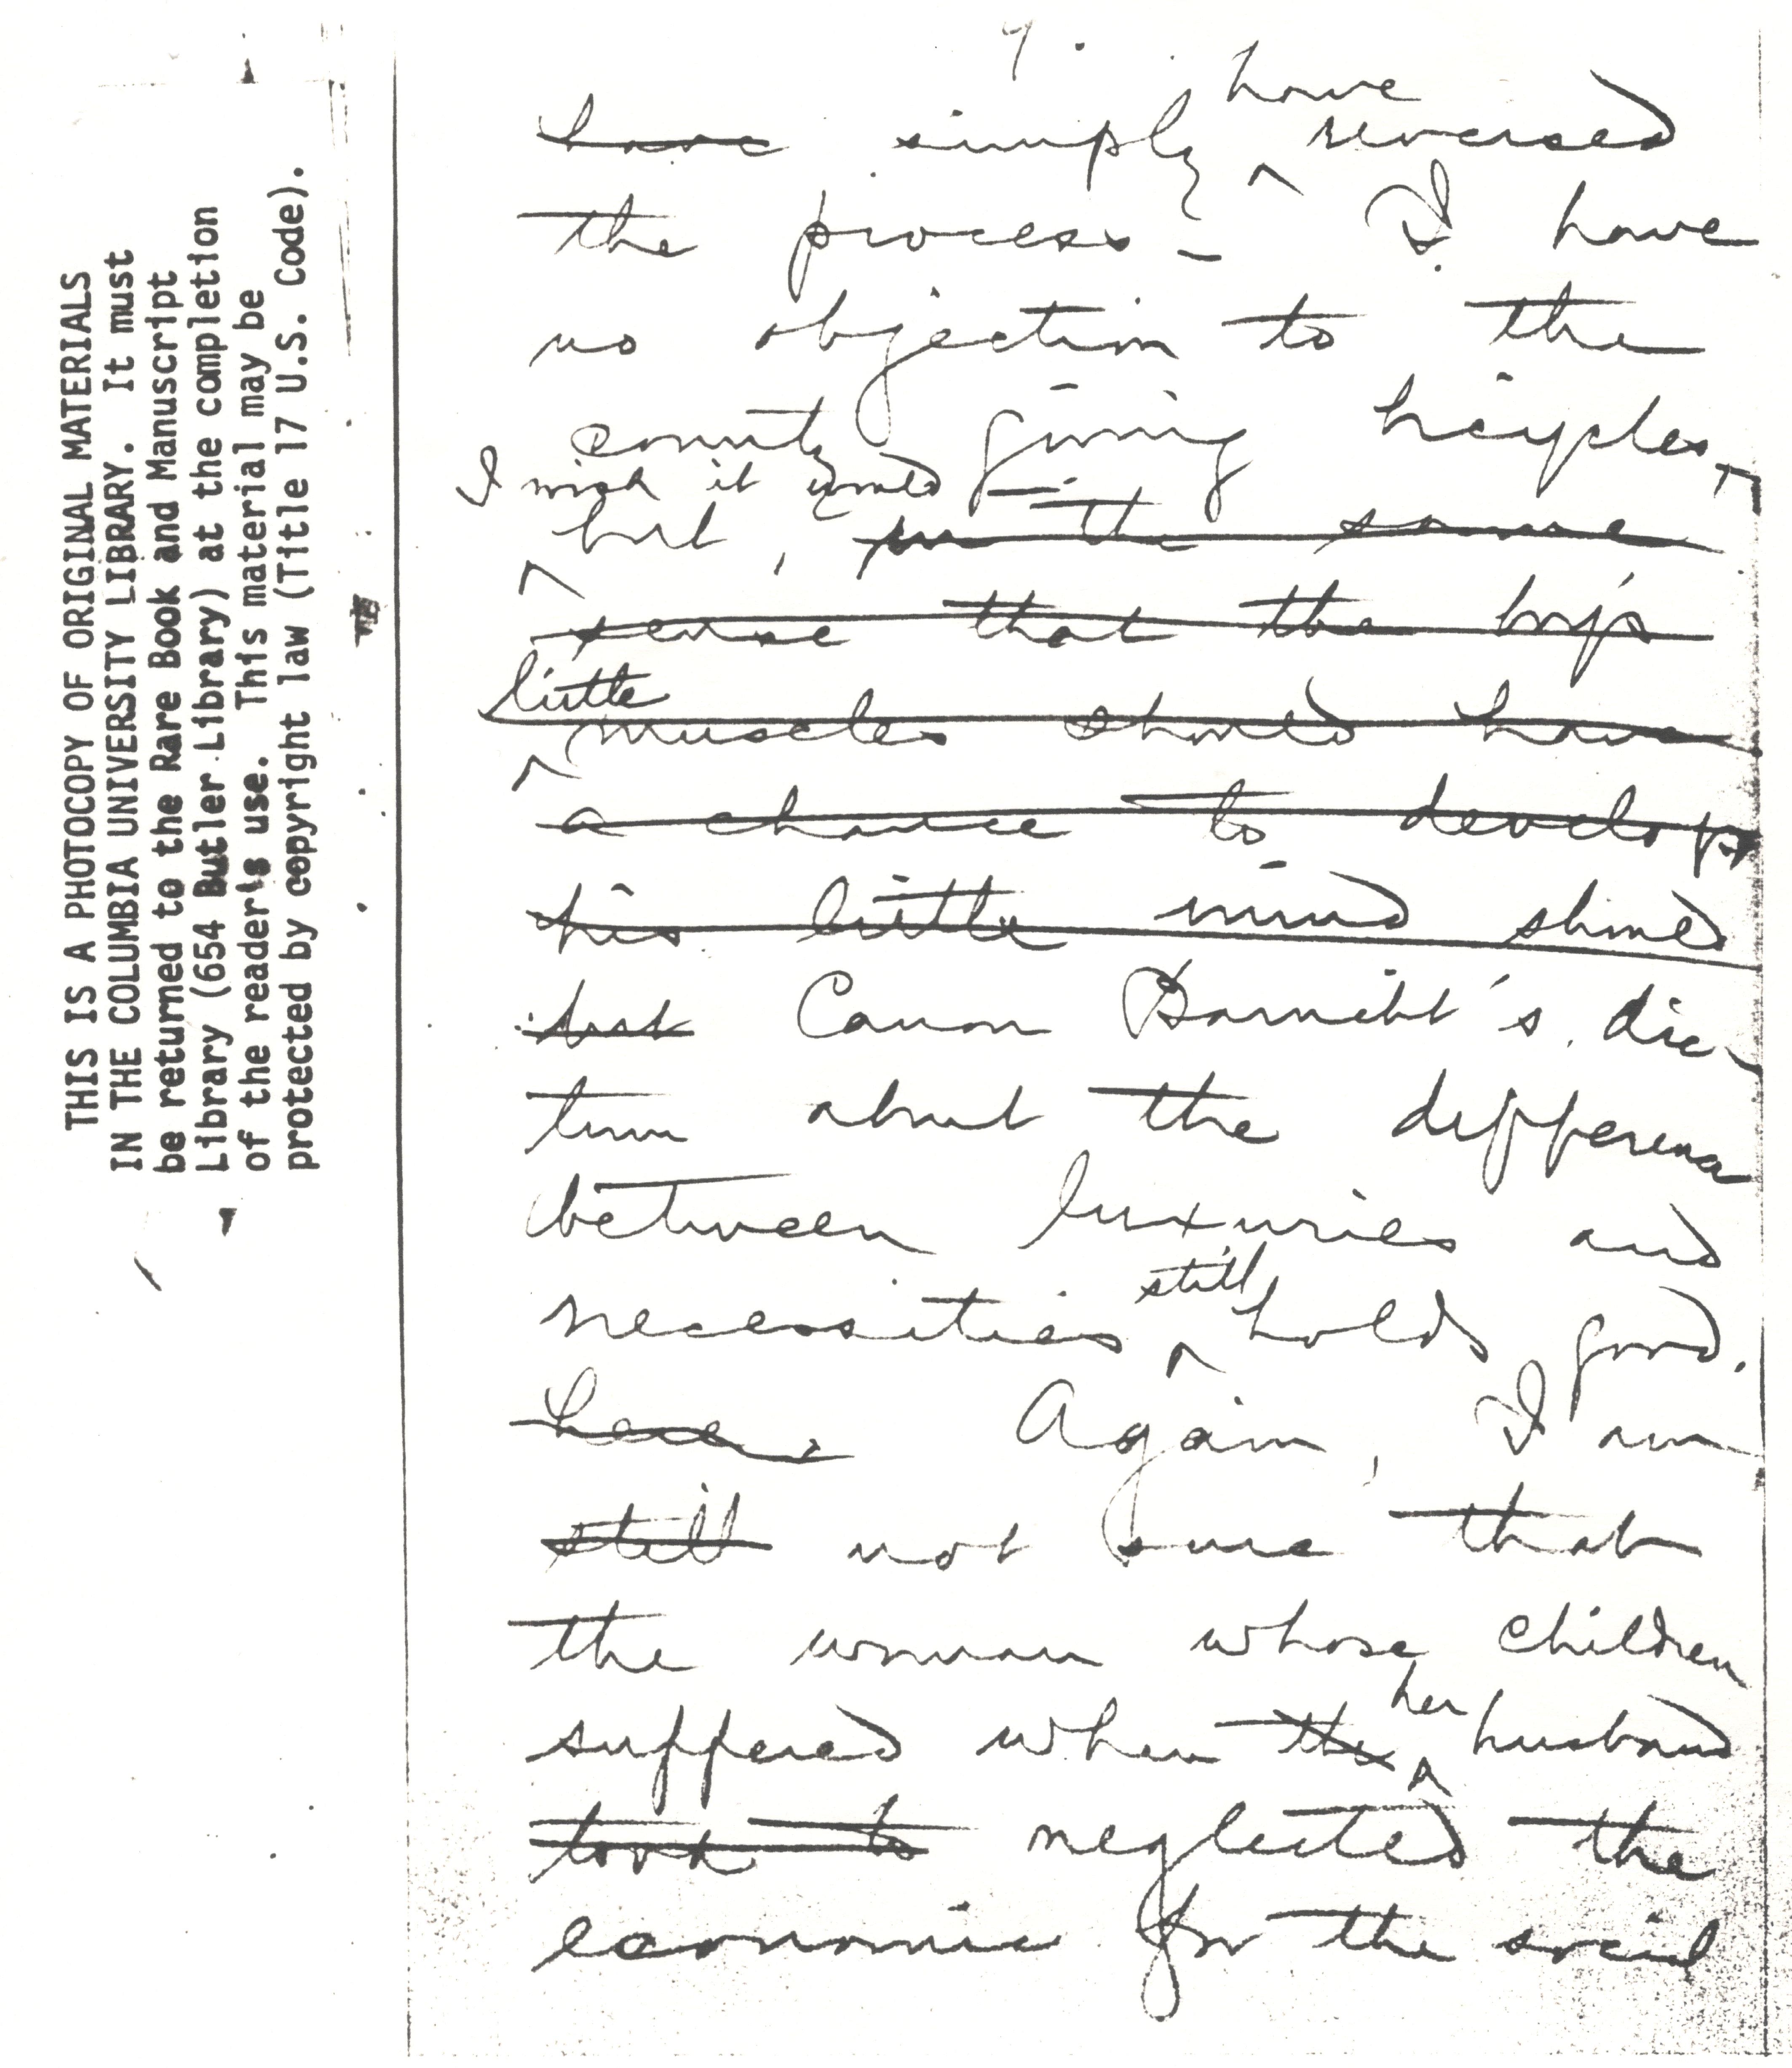 THIS IS A PHOTOCOPY OF ORIGINAL MATERIALS
IN THE COLUMBIA UNIVERSITY LIBRARY. It must
be returned to the Rare Book and Manuscript
Library (654 Butler Library) at the completion
of the reader's use. This material may be
protected by copyright law (Title 17 U.S. Code).
9.
have
have simply ^ reversed
the process - I have
no objection to the
county giving bicycles,
I wish it would
but, in the same
^
sense that the boy's
little
^ muscles should have
a chance to develop
his little mind should
but Canon Barnett's dic-
tum about the difference
between luxuries and
still
necessities ^ holds good.
here. Again, I am
still not sure that
the woman whose children
her
suffered when the ^ husband
took to neglected the
economic for the social